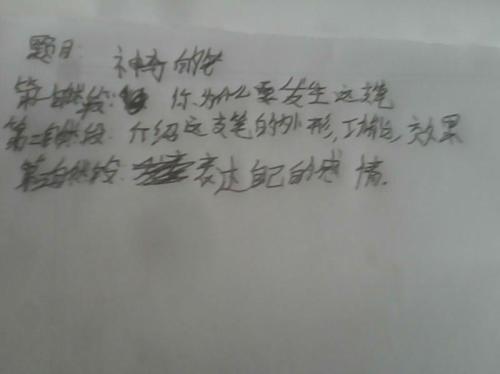 题目: 神奇的笔
第一自然段: 你为什么要发生这支笔
第二自然段: 介绍这支笔的外形,功能,效果
第三自然段: 表达自己的感情.